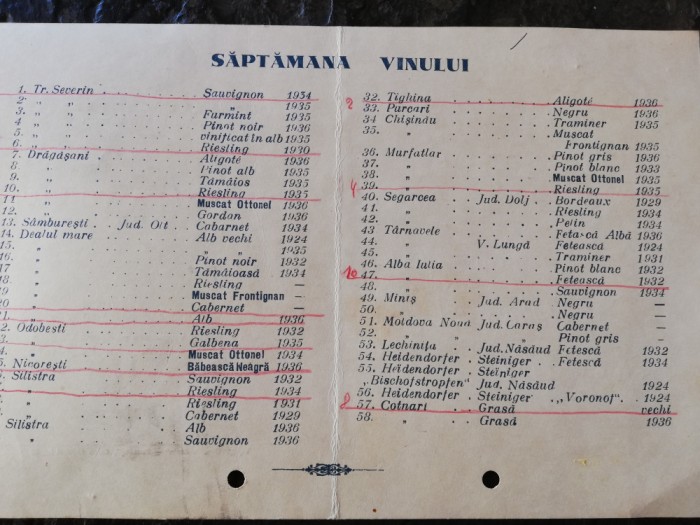 SĂPTĂMANA VINULUI
1. Tr. Severin . . . . . . . Sauvignon 1934
2. „ „ . . . . . . . „ 1935
3. „ „ . . . . . . . Furmint 1935
4. „ „ . . . . . . . Pinot noir 1936
5. „ „ . . . . . . . vinificat în alb 1935
6. „ „ . . . . . . . Riesling 1930
7. Drăgășani . . . . . . . Aligoté 1936
8. „ . . . . . . . Pinot alb 1935
9. „ . . . . . . . Tămâios 1935
10. „ . . . . . . . Riesling 1935
11. „ . . . . . . . Muscat Ottonel 1936
12. „ . . . . . . . Gordan 1936
13. Sâmburești . . Jud. Olt . . Cabernet 1934
14. Dealul mare . . . . . . . Alb vechi 1924
15. „ . . . . . . . „ „ 1935
16. „ . . . . . . . Pinot noir 1932
17. „ . . . . . . . Tămâioasă 1934
18. „ . . . . . . . Riesling —
„ . . . . . . . Muscat Frontignan —
20 „ . . . . . . . Cabernet —
21. „ . . . . . . . Alb 1936
2. Odobești . . . . . . . Riesling 1932
„ . . . . . . . Galbena 1935
4. „ . . . . . . . Muscat Ottonel 1934
5. Nicorești . . . . . . . Băbească Neagră 1936
Silistra . . . . . . . Sauvignon 1932
„ . . . . . . . Riesling 1934
„ . . . . . . . Riesling 1931
„ . . . . . . . Cabernet 1929
Silistra . . . . . . . Alb 1936
„ . . . . . . . Sauvignon 1936
32. Tighina . . . . . . . Aligoté 1936
33. Purcari . . . . . . . Negru 1936
34 Chișinău . . . . . . . Traminer 1935
35. „ . . . . . . . Muscat
Frontignan 1935
36. Murfatlar . . . . . . . Pinot gris 1936
37. „ . . . . . . . Pinot blanc 1933
38. „ . . . . . . . Muscat Ottonel 1935
39. „ . . . . . . . Riesling 1935
40. Segarcea . . Jud. Dolj . . Bordeaux 1929
41. „ . . . . . . . Riesling 1934
42. „ . . . . . . . Pelin 1934
43 Târnavele . . . . . . . Fetască Albă 1936
44. „ . . V. Lungă . . Fetească 1924
45. „ . . . . . . . Traminer 1931
46. Alba Iulia . . . . . . . Pinot blanc 1932
47. „ . . . . . . . Fetească 1932
48. „ . . . . . . . Sauvignon 1934
49. Miniș Jud. Arad . Negru —
50. „ . . . . . . . Negru —
51. Moldova Nouă Jud. Caraș Cabernet —
52. „ . . . . . . . Pinot gris —
53. Lechința . . Jud. Năsăud Fetescă 1932
54. Heidendorfer . Steiniger . Fetescă 1934
55. Heidendorfer . Steiniger
„Bischofstropfen” Jud. Năsăud 1924
56. Heidendorfer . Steiniger . „Voronof” . 1924
57. Cotnari . . . Grasă vechi
58. „ . . . Grasă 1936